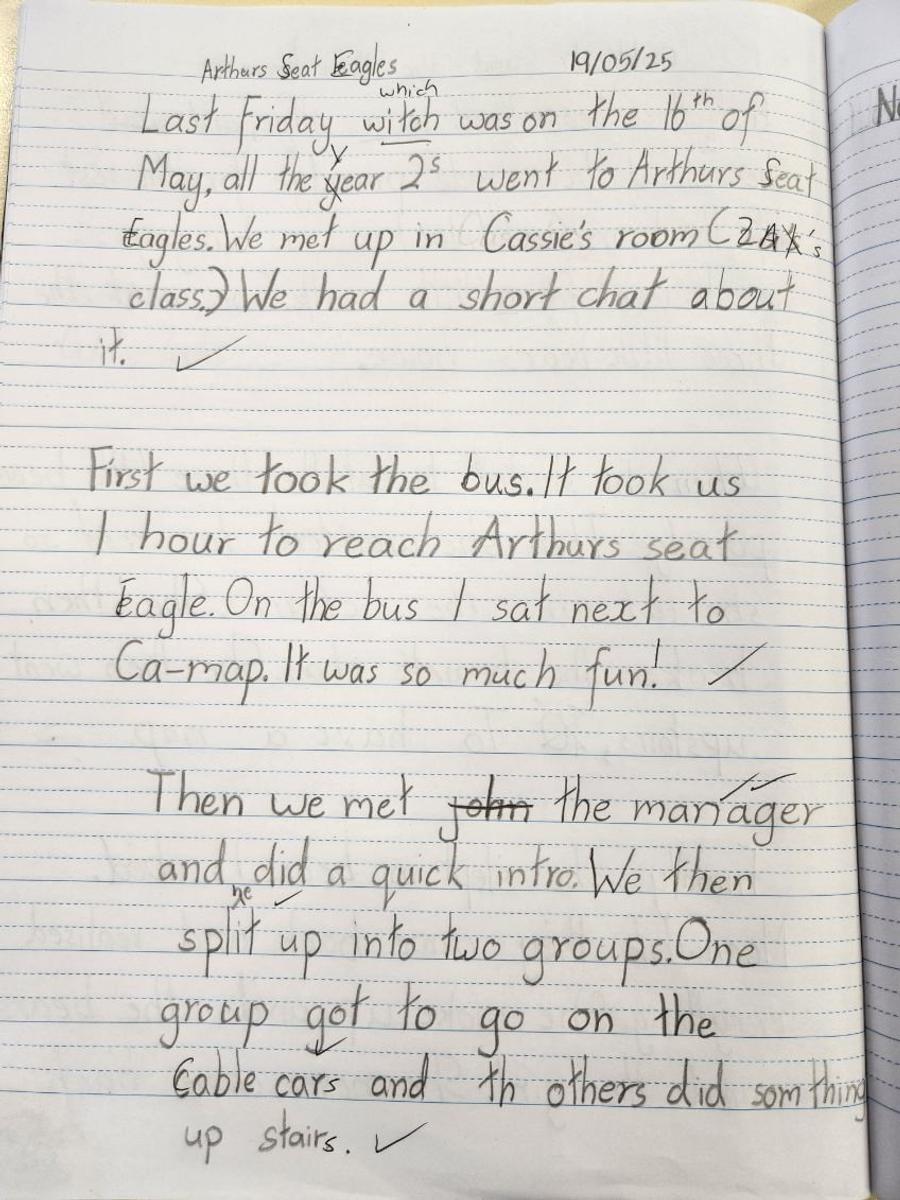 Arthurs Seat Eagles 19/05/25
which
Last Friday witch was on the 16th of
May, all the year 2s went to Arthurs Seat
Eagles. We met up in Cassie's room (2AK's
class.) We had a short chat about
it.
First we took the bus. It took us
1 hour to reach Arthurs seat
Eagle. On the bus I sat next to
Ca-map. It was so much fun!
Then we met john the manager
and did a quick intro. We then
he
split up into two groups. One
group got to go on the
Cable cars and th others did som thing
up stairs.